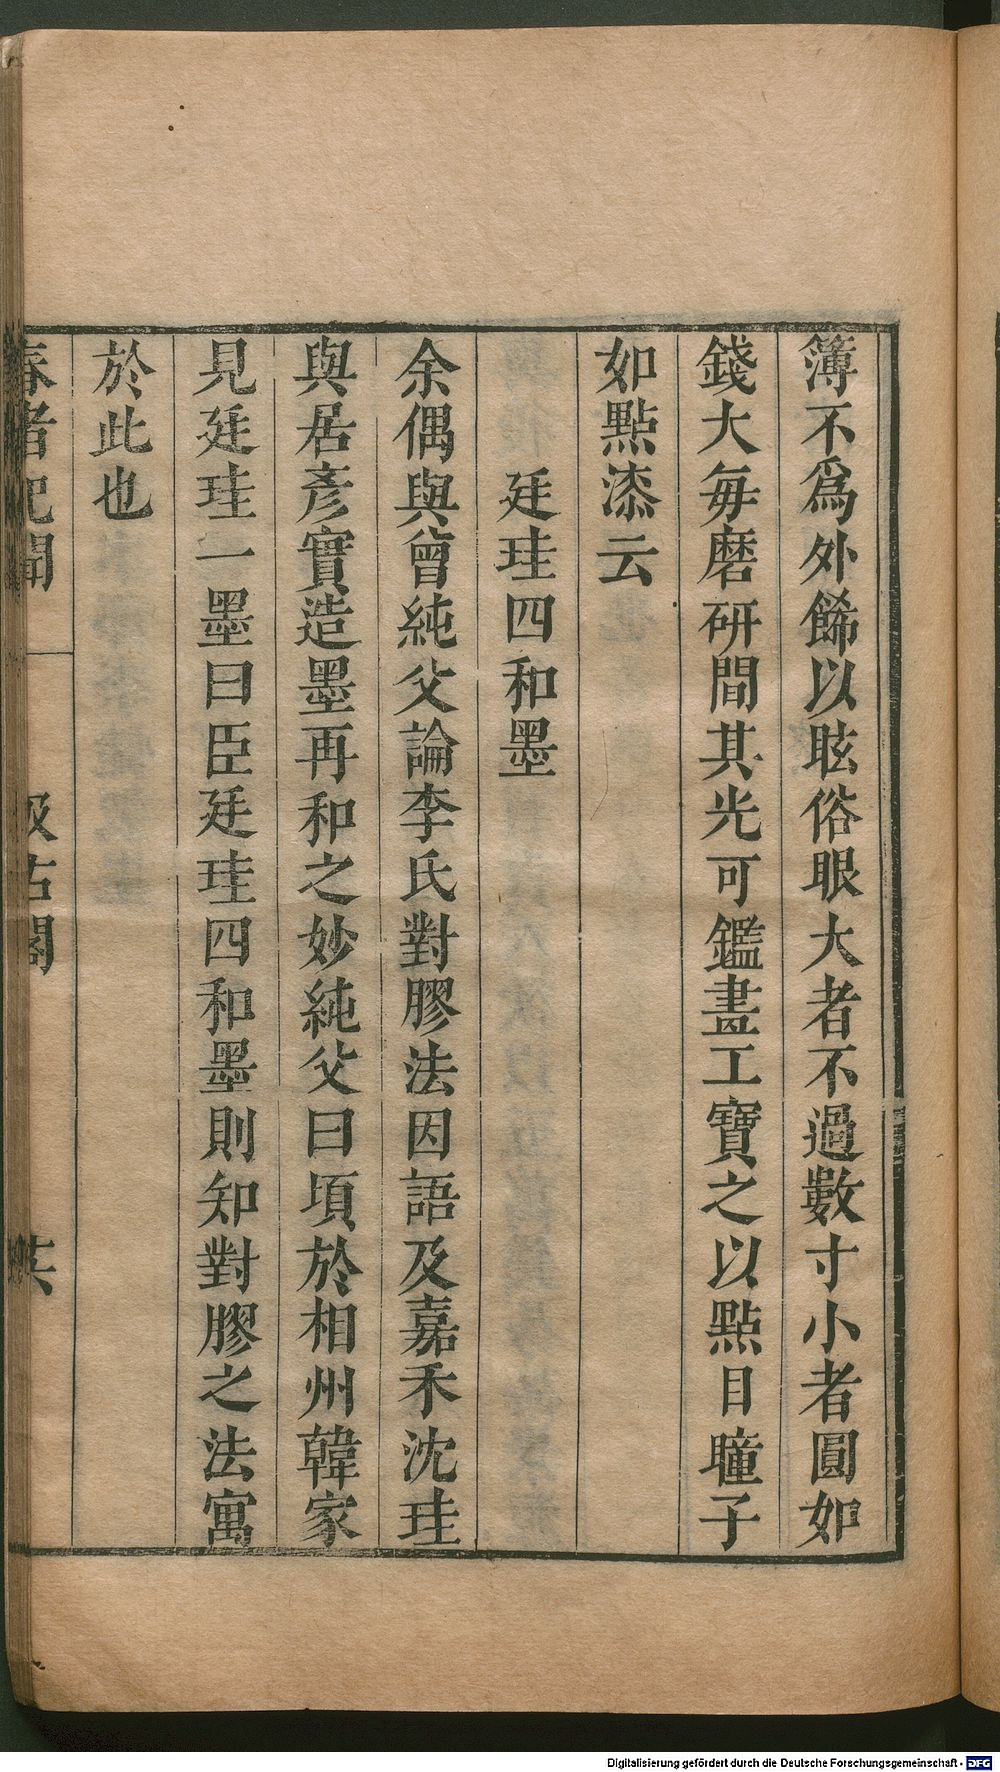 簿不爲外餙以眩俗眼大者不過數寸小者圓如
錢大毎磨研間其光可鑑畫工寶之以點目瞳子
如點漆云
廷珪四和墨
余偶與曾純父論李氏對膠法因語及嘉禾沈珪
與居彥實造墨再和之妙純父曰頃於相州韓家
見廷珪一墨曰臣廷珪四和墨則知對膠之法寓
於此也
春渚紀聞
汲古閣
Digitalisierung gefördert durch die Deutsche Forschungsgemeinschaft - DFG